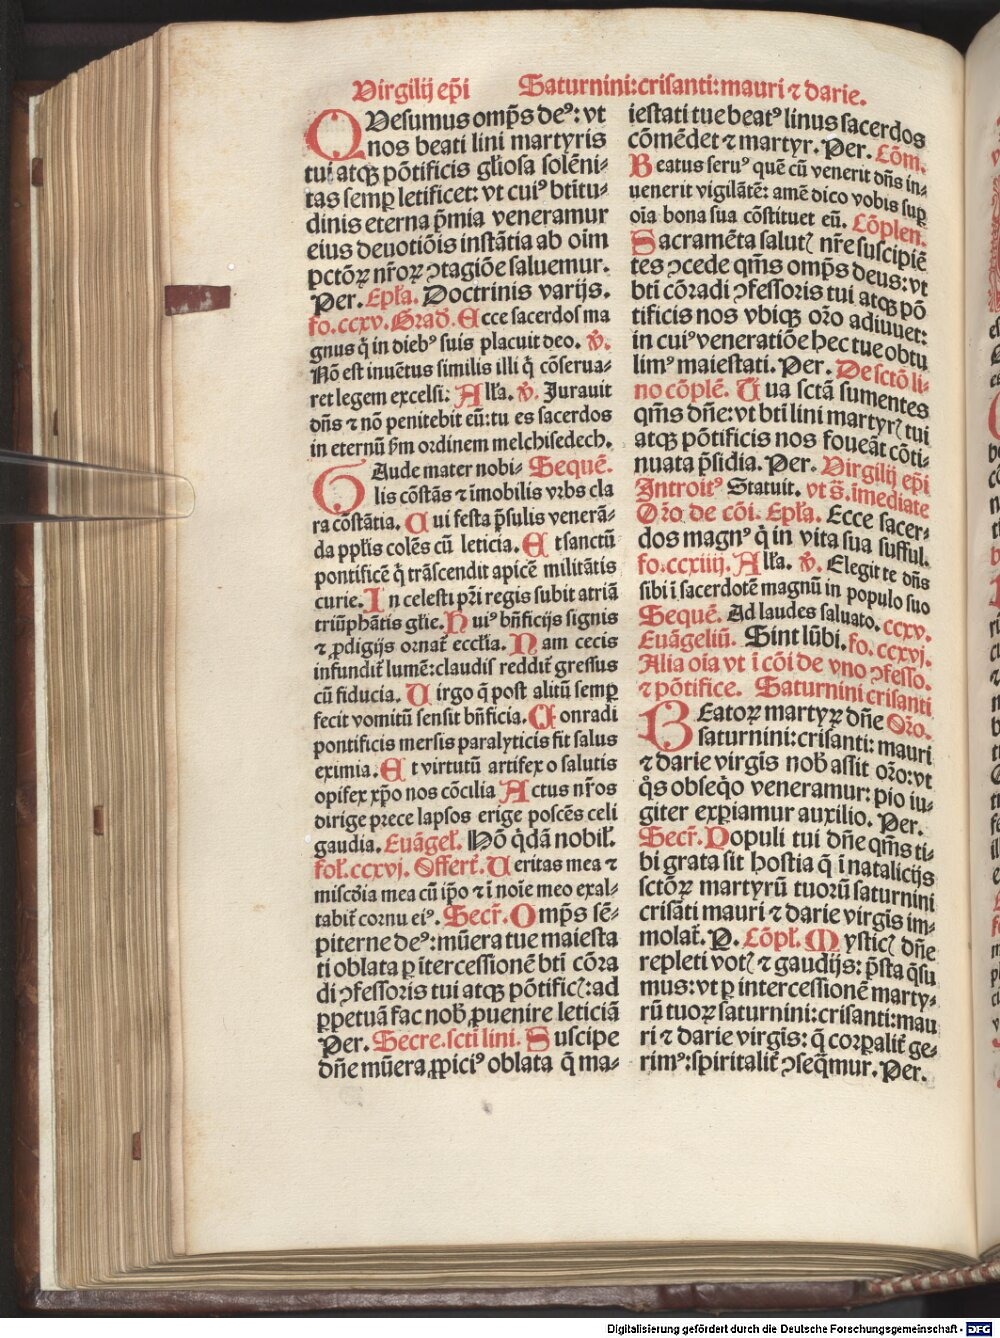 Virgilij ep̄i Saturnini:crisanti:mauri ⁊ darie.
QVesumus omp̄s deꝰ: vt
nos beati lini martyris
tui atqꝫ pōtificis gl̄iosa solēni-
tas semp̱ letificet: vt cuiꝰ btītu-
dinis eterna p̄mia veneramur
eius deuotiōis instātia ab oīm
p̱ctōꝝ nr̄oꝝ ꝯtagiōe saluemur.
Per. Ep̄ła. Doctrinis varijs.
fo.ccxv. Grad̄. Ecce sacerdos ma
gnus q̄ in diebꝰ suis placuit deo. ꝟ.
Nō est inuētus similis illi q̄ cōserua-
ret legem excelsi: Alła. ꝟ. Jurauit
dn̄s ⁊ nō penitebit eū:tu es sacerdos
in eternū ẜm ordinem melchisedech.
GAude mater nobi- Sequē.
lis cōstās ⁊ īmobilis vrbs cla
ra cōstātia. Cui festa p̄sulis venerā-
da ppłis colēs cū leticia. Et sanctū
pontificē q̄ trāscendit apicē militātis
curie. In celesti pr̄i regis subit atriā
triūphātis gl̄ie. Huiꝰ bn̄ficijs signis
⁊ ꝓdigijs ornat᷑ eccl̄ia. Nam cecis
infundit᷑ lumē:claudis reddit᷑ gressus
cū fiducia. Virgo q̄ post alitū semp̱
fecit vomitū sensit bn̄ficia. Conradi
pontificis mersis paralyticis fit salus
eximia. Et virtutū artifex o salutis
opifex xp̄o nos cōcilia Actus nr̄os
dirige prece lapsos erige poscēs celi
gaudia. Euāgeł. Nō q̄dā nobił.
foł.ccxvj. Offert᷑. Ueritas mea ⁊
misc̄dia mea cū ip̄o ⁊ ī noīe meo exal-
tabit᷑ cornu eiꝰ. Secr̄. Omp̄s sē-
piterne deꝰ:mūera tue maiesta
ti oblata p̱ ītercessionē btī cōra
di ꝯfessoris tui atqꝫ pōtificꝭ:ad
p̱petuā fac nob̄ ꝓuenire leticiā
Per. Secre.sctī lini. Suscipe
dn̄e mūera ꝓpiciꝰ oblata q̄ ma-
iestati tue beatꝰ linus sacerdos
cōmēdet ⁊ martyr. Per. Cōm.
Beatus seruꝰ quē cū venerit dn̄s in-
uenerit vigilātē: amē dico vobis sup̱
oīa bona sua cōstituet eū. Cōplen.
Sacramēta salutꝭ nr̄e suscipiē
tes ꝯcede qm̄s omp̄s deus: vt
btī cōradi ꝯfessoris tui atqꝫ pō
tificis nos vbiqꝫ oŕo adiuuet:
in cuiꝰ veneratiōe hec tue obtu
limꝰ maiestati. Per. De sctō li-
no cōplē. Qua sctā sumentes
qm̄s dn̄e:vt btī lini martyrꝭ tui
atqꝫ pōtificis nos foueāt cōti-
nuata p̄sidia. Per. Virgilij ep̄i
Introitꝰ Statuit. vt s̄. īmediate
Oŕo de cōi. Ep̄ła. Ecce sacer-
dos magnꝰ q̄ in vita sua suffuł.
fo.ccxiiij. Alła. ꝟ. Elegit te dn̄s
sibi ī sacerdotē magnū in populo suo
Sequē. Ad laudes saluato. ccxv.
Euāgeliū. Sint lūbi. fo. ccxvj.
Alia oīa vt ī cōi de vno ꝯfesso.
⁊ pōtifice. Saturnini crisanti
BEatoꝝ martyꝝ dn̄e Oŕo.
saturnini:crisanti: mauri
⁊ darie virgīs nob̄ assit oŕo:vt
q̄s obseq̄o veneramur: pio iu-
giter exp̱iamur auxilio. Per.
Secr̄. Populi tui dn̄e qm̄s ti-
bi grata sit hostia q̄ ī natalicijs
sctōꝝ martyrū tuorū saturnini
crisāti mauri ⁊ darie virgīs im-
molat᷑. P. Cōpł. Mysticꝭ dn̄e
repleti votꝭ ⁊ gaudijs: p̄sta q̄su
mus:vt p̱ intercessionē marty-
rū tuoꝝ saturnini:crisanti:mau
ri ⁊ darie virgīs: q̄ corp̱alit᷑ ge-
rimꝰ:spiritalit᷑ ꝯseq̄mur. Per.
Digitalisierung gefördert durch die Deutsche Forschungsgemeinschaft - DFG